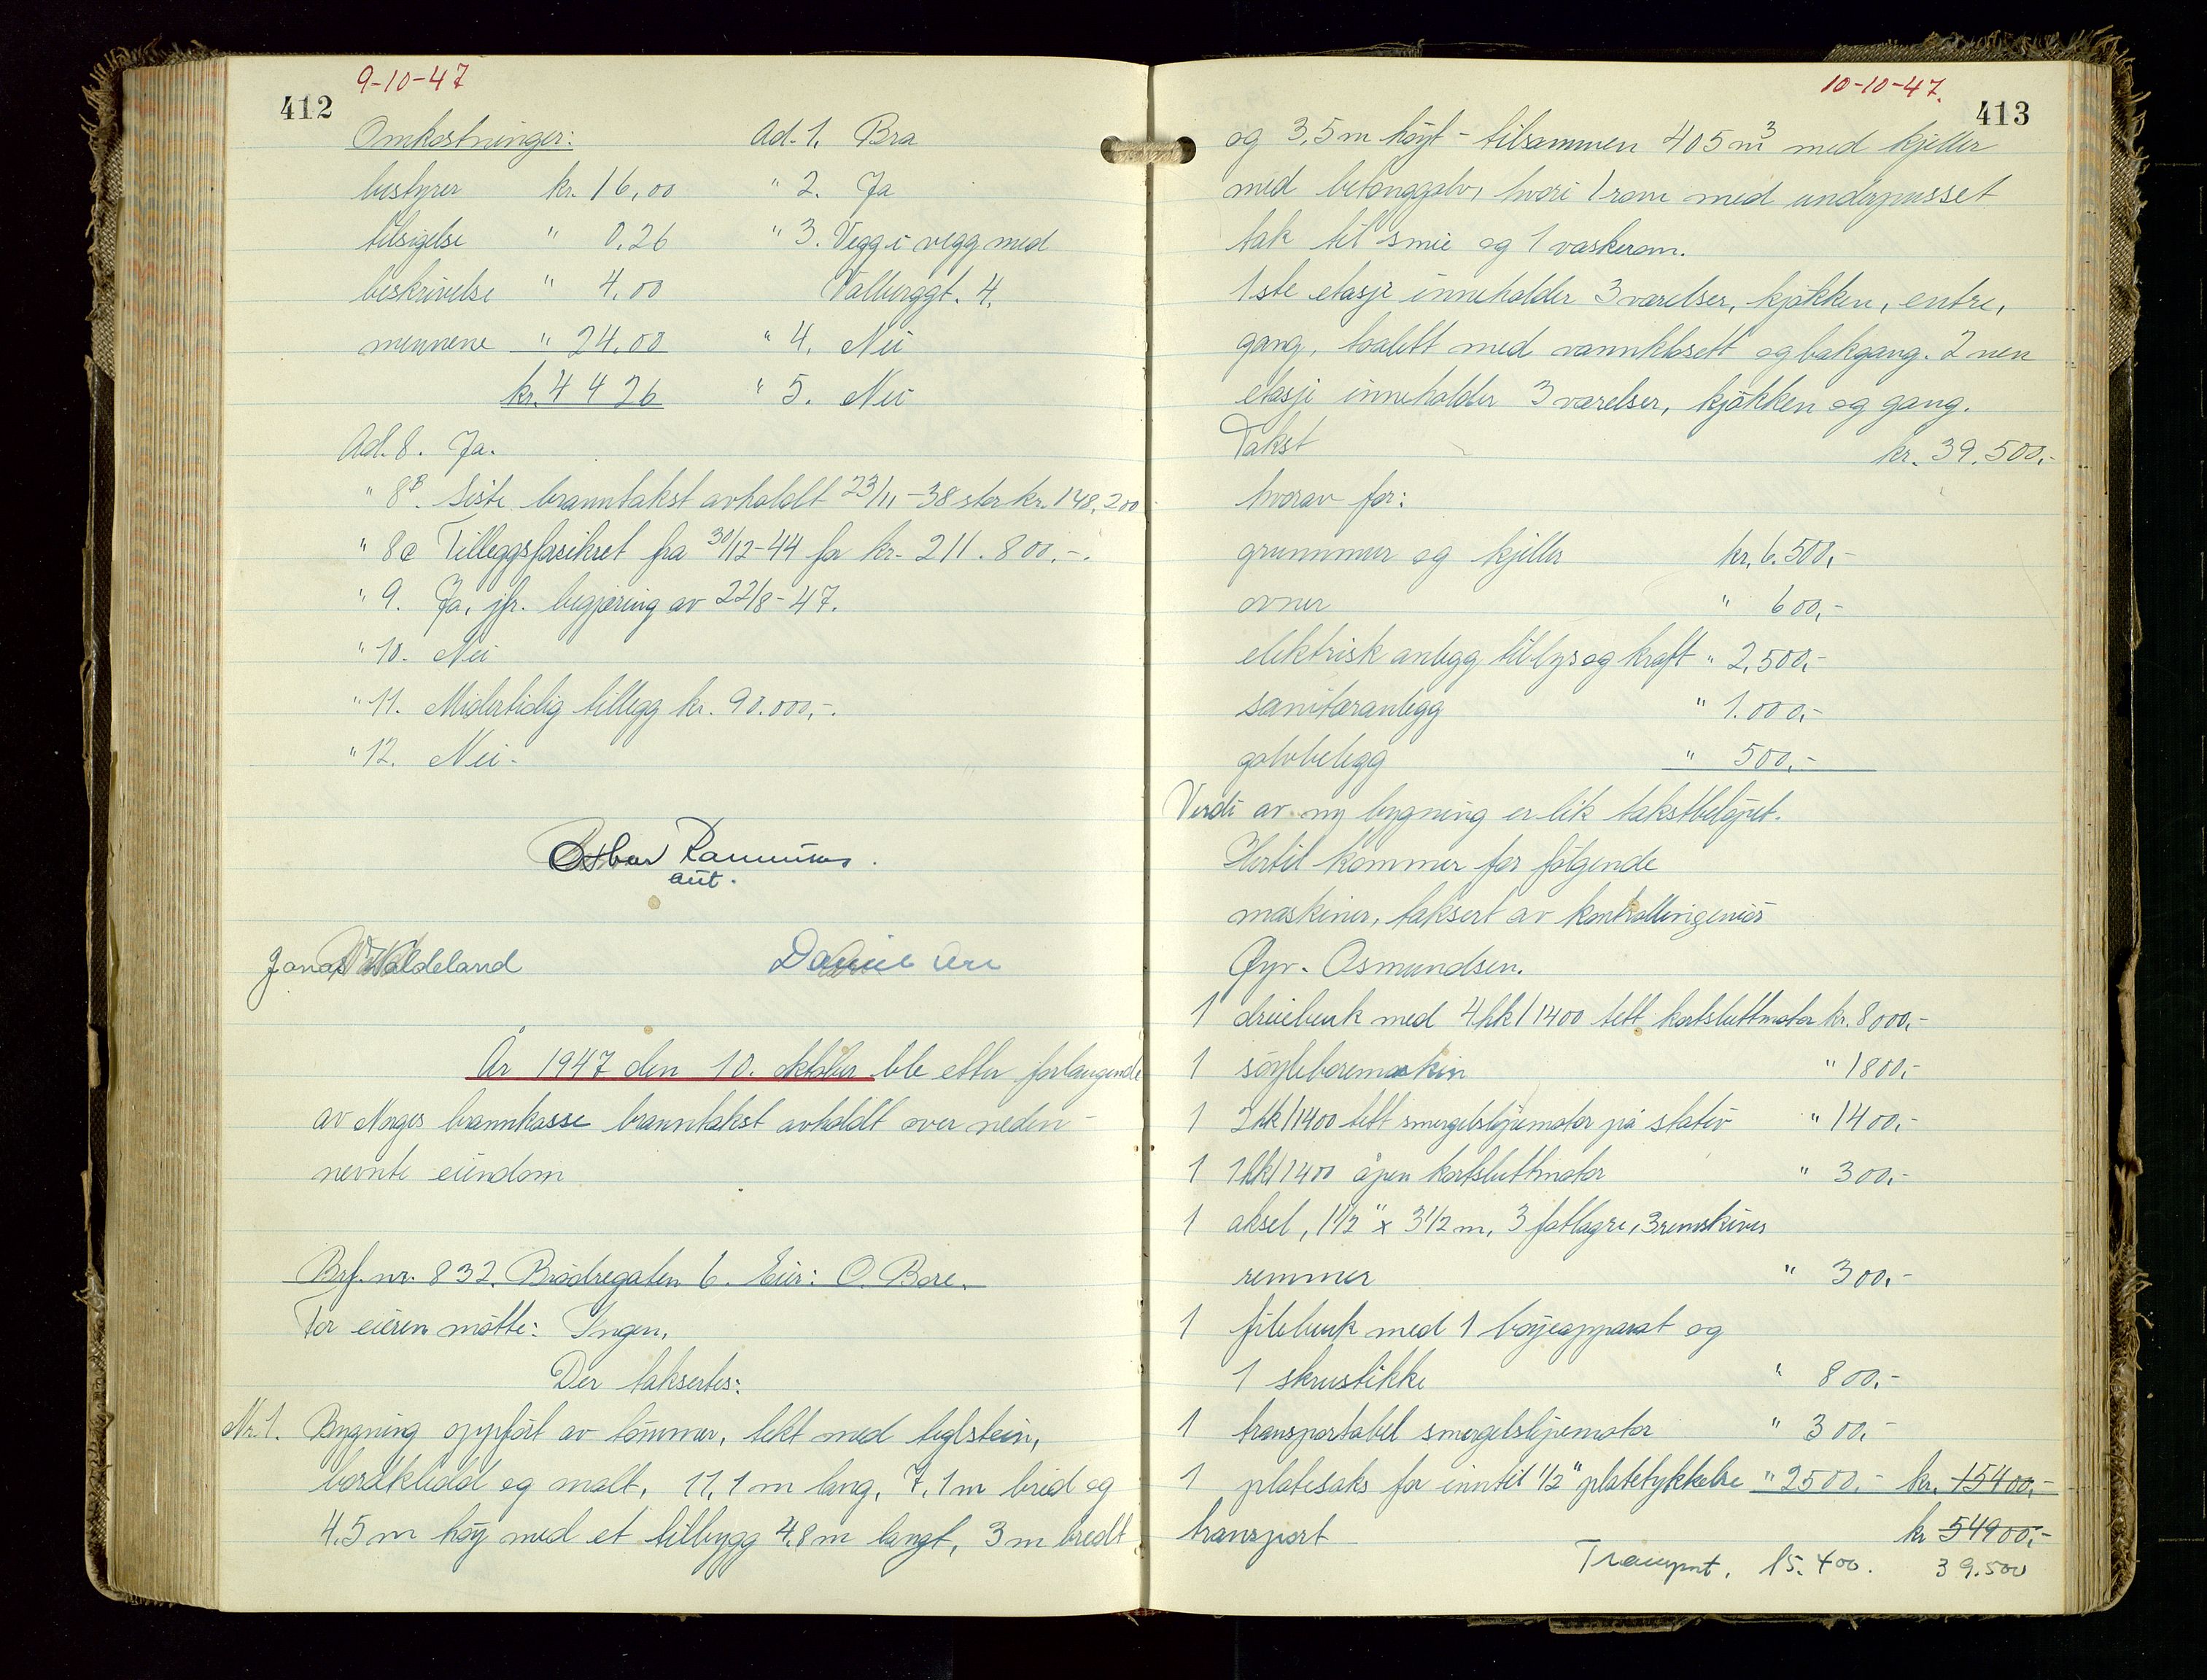 9-10-47
412
Omkostninger: Ad. 1. Bra
bestyrer kr. 16,00 " 2. Ja
tilsigelse " 0.26 " 3. Vegg i vegg med
beskrivelse " 4.00 Valberggt. 4.
mennene " 24.00 " 4. Nei
kr. 44 26 " 5. Nei
Ad. 8. Ja.
" 8B. Siste branntakst avholdt 23/11-38 stor kr. 148,200
" 8c Tilleggsforsikret fra 30/12-44 for kr. 211.800.-.
" 9. Ja, jfr. begjæring av 22/8-47.
" 10. Nei
" 11. Midlertidig tillegg kr. 90.000,-.
" 12. Nei.
aut.
Jonas Waldeland Daniel
År 1947 den 10. oktober ble etter forlangende
av Norges brannkasse branntakst avholdt over neden-
nevnte eiendom
Brf. nr. 832. Brødregaten 6. Eier: O. Bore.
For eieren møtte: Ingen.
Der taksertes:
Nr. 1. Bygning oppført av tømmer, tekt med teglstein,
bordkledd og malt, 11,1 m lang, 7,1 m bred og
4,5 m høy med et tilbygg 4,8 m langt, 3 m bredt
10-10-47.
413
og 3,5 m høyt - tilsammen 405 m3 med kjeller
med betonggolv, hvori 1 rom med underpusset
tak til smie og 1 vaskerom.
1ste etasje inneholder 3 værelser, kjøkken, entre,
gang, toalett med vannklosett og bakgang. 2nen
etasje inneholder 3 værelser, kjøkken og gang.
Takst kr. 39.500.-
hvorav for:
grunnmur og kjeller kr. 6.500,-
ovner " 600,-
elektrisk anlegg til lys og kraft " 2,500,-
sanitæranlegg " 1.000,-
golvbelegg " 500,-
Verdi av ny bygning er lik takstbeløpet.
Hertil kommer for følgende
maskiner, taksert av kontrollingeniør
Gyr. Osmundsen.
1 dreiebenk med 4hk/1400 tett kortsluttmotor kr. 8000,-
1 søyleboremaskin " 1800,-
1 2hk/1400 tett smergelslipemotor på stativ " 1400,-
1 1hk/1400 åpen kortsluttmotor " 300,-
1 aksel, 1 1/2" x 3 1/2 m, 3 fotlagre, 3 remskiver
remmer " 300,-
1 filebenk med 1 bøyeapparat og
1 skrustikke " 800,-
1 transportabel smergelslipemotor " 300,-
1 platesaks for inntil 1/2" platetykkelse " 2500,- kr. 15400,-
transport kr 54900,-
Transport. 15.400. 39.500